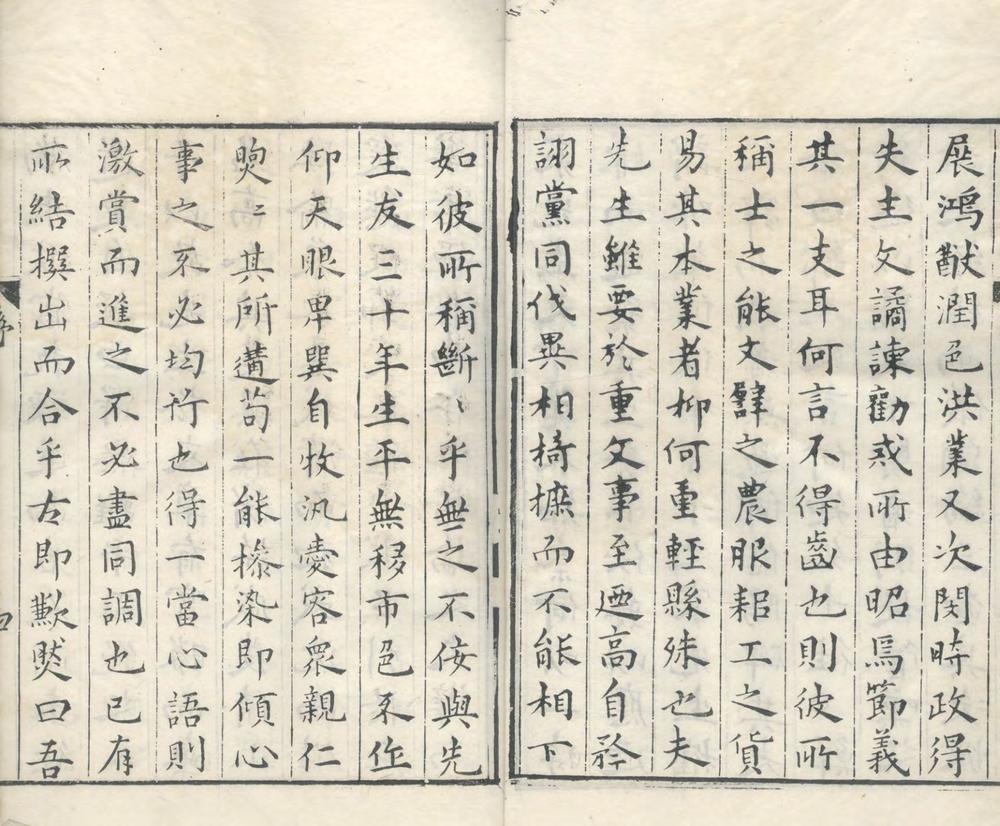 展鴻猷潤色洪業又次閔時政得
失主文譎諫勸戒所由昭焉節義
其一支耳何言不得齒也則彼所
稱士之能文辟之農服耜工之貨
易其本業者抑何重輕縣殊也夫
先生雖要於重文事至迺高自矜
詡黨同伐異相掎摭而不能相下
如彼所稱斷〻乎無之不佞與先
生友三十年生平無移市色不作
仰天眼卑巽自牧汎愛容眾親仁
煦〻其所遘苟一能槮染即傾心
事之不必均竹也得一當心語則
激賞而進之不必盡同調也已有
所結撰出而合乎古即歉然曰吾
序
四